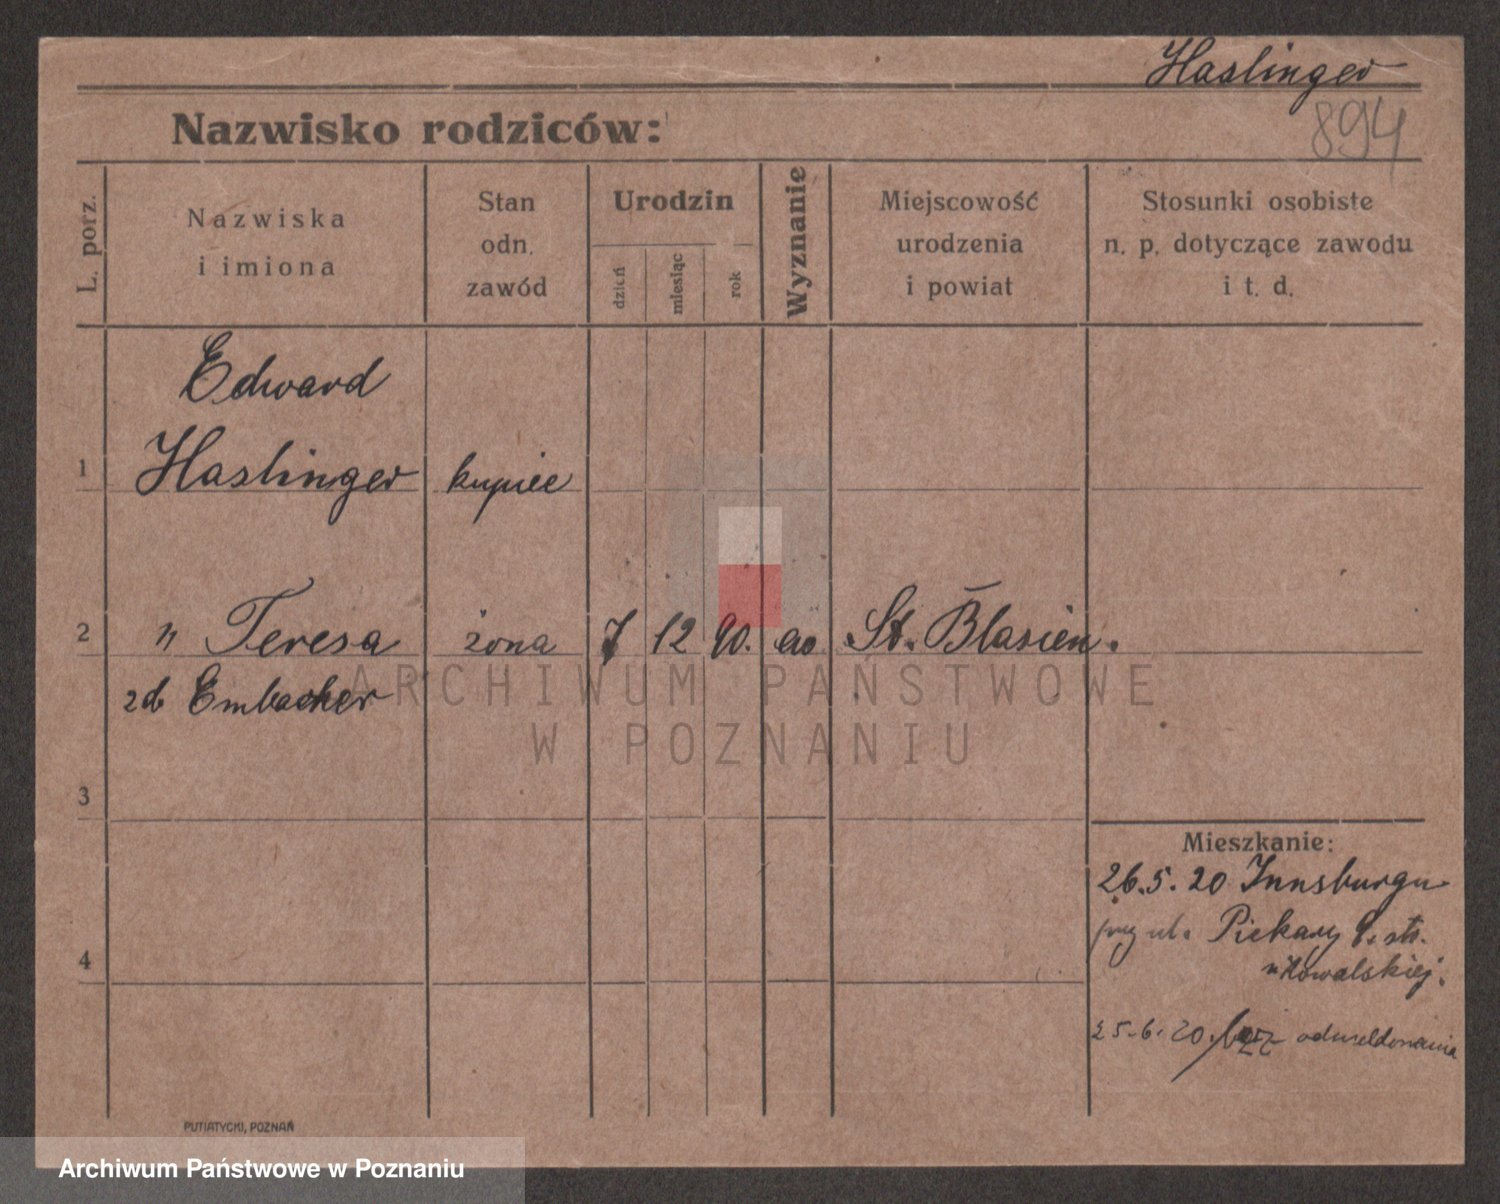 Haslinger
894
Nazwisko rodziców:
L. porz.
Nazwiska
i imiona
Stan
odn.
zawód
Urodzin
dzień
miesiąc
rok
Wyznanie
Miejscowość
urodzenia
i powiat
Stosunki osobiste
n. p. dotyczące zawodu
i t. d.
Edward
1 Haslinger kupiec
2 " Teresa żona 7 12 90. St. Blasien.
zd Embacher
3
Mieszkanie:
26.5.20 Innsburgu
przy ul. Piekary
Kowalskiej.
4
25.6.20. bez odmeldowania
PUTIATYCKI, POZNAŃ
ARCHIWUM PAŃSTWOWE
W POZNANIU
Archiwum Państwowe w Poznaniu